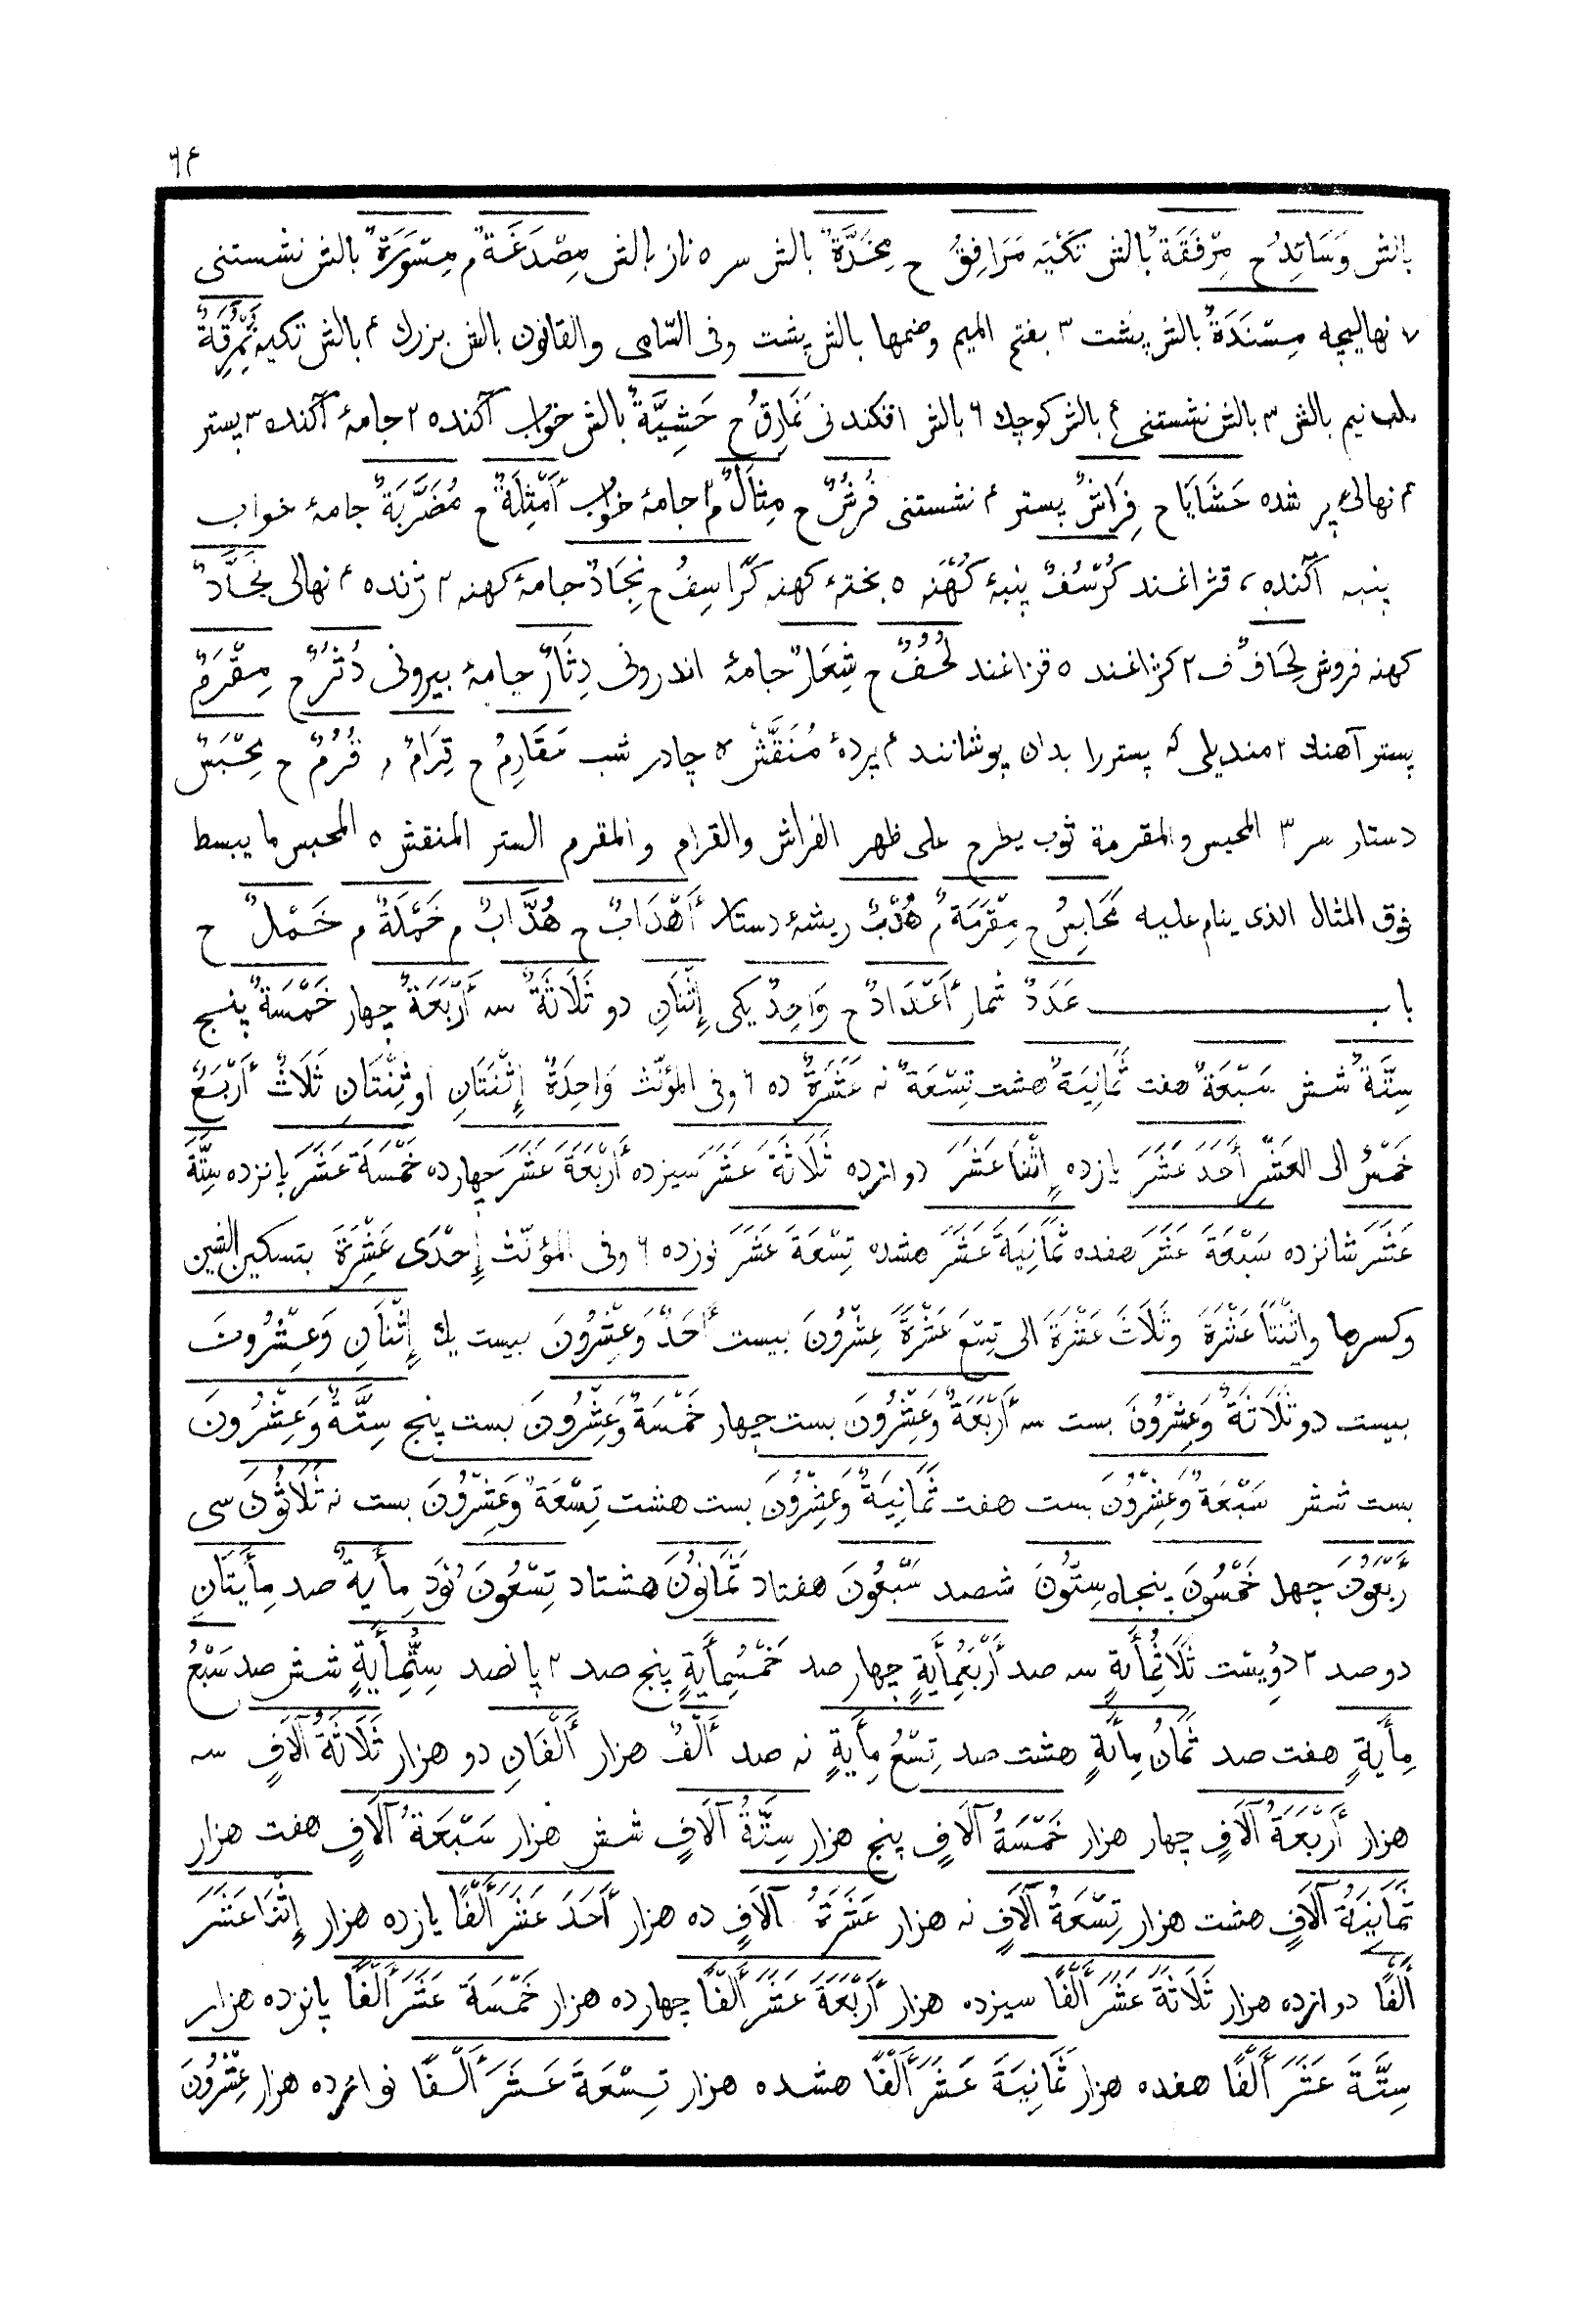 ۶۴
بالش وَسَائِدُ ح مِرْفَقَةٌ بالش تَكْيَه مَرَافِقُ ح مِخَدَّةٌ بالش سر ۵ ناز بالش مِصْدَغَةٌ م مِسْوَرَةٌ بالش نشستنی
۷ نهالیچه مِسْنَدَةٌ بالش پشت ۳ بفتح المیم وضمها بالش پشت وفی السّامی والقانون بالش بزرك ۴ بالش تکیه نُمْرُقَةٌ
نیم بالش ۳ بالش نشستنی ۴ بالش کوچك ۶ بالش افکندنی نَمَارِقُ ح حَشِيَّةٌ بالش خواب آکنده ۲ جامهٔ آکنده ۳ بستر
۴ نهالیٔ پر شده حَشَايَا ح فِرَاشٌ بستر ۴ نشستنی فُرُشٌ ح مِثَالٌ م ۳ جامهٔ خواب أَمْثِلَةٌ ح مُضَرَّبَةٌ جامهٔ خواب
پنبه آکنده ، قژاغند كُرْسُفٌ پنبهٔ كُهْنَه ۵ بختهٔ کهنه كَرَاسِفُ ح نِجَادٌ جامهٔ کهنه ۲ ژنده ۴ نهالی نَجَّادٌ
کهنه فروش لِحَافٌ ف ۲ کژاغند ۵ قزاغند لُحُفٌ ح شِعَارٌ جامهٔ اندرونی دِثَارٌ جامهٔ بیرونی دُثُرٌ ح مِقْرَمٌ
پستر آهنك ۲ مندیلی که پستررا بدان پوشانند ۴ پردهٔ مُنَقَّشْ ۵ چادر شب مَقَارِمُ ح قِرَامٌ م قُرُمٌ ح مِحْبَسٌ
دستار سر ۳ المحبس والمقرمة ثوب یطرح علی ظهر الفراش والقرام والمقرم الستر المنقش ۵ المحبس ما یبسط
فوق المثال الذی ینام علیه مَحَابِسُ ح مِقْرَمَةٌ م هُدْبٌ ریشهٔ دستار أَهْدَابٌ ح هُدَّابٌ م خَمْلَةٌ م خَمْلٌ ح
باب عَدَدٌ شمار أَعْدَادٌ ح وَاحِدٌ یکی إِثْنَانِ دو ثَلَاثَةٌ سه أَرْبَعَةٌ چهار خَمْسَةٌ پنج
سِتَّةٌ شش سَبْعَةٌ هفت ثَمَانِيَةٌ هشت تِسْعَةٌ نه عَشَرَةٌ ده ۶ وفی المؤنّث وَاحِدَةٌ إِثْنَتَانِ او ثِنْتَانِ ثَلَاثٌ أَرْبَعٌ
خَمْسٌ الی العَشْرِ أَحَدَ عَشَرَ یازده إِثْنَا عَشَرَ دوازده ثَلَاثَةَ عَشَرَ سیزده أَرْبَعَةَ عَشَرَ چهارده خَمْسَةَ عَشَرَ پانزده سِتَّةَ
عَشَرَ شانزده سَبْعَةَ عَشَرَ هفده ثَمَانِيَةَ عَشَرَ هشده تِسْعَةَ عَشَرَ نوزده ۶ وفی المؤنّث إِحْدَى عَشِرَةَ بتسکین الشین
وکسرها واثْنَتَا عَشْرَةَ وثَلَاثَ عَشْرَةَ الی تِسْعَ عَشْرَةَ عِشْرُونَ بیست أَحَدٌ وَعِشْرُونَ بیست یك إِثْنَانِ وَعِشْرُونَ
بیست دو ثَلَاثَةٌ وَعِشْرُونَ بست سه أَرْبَعَةٌ وَعِشْرُونَ بست چهار خَمْسَةٌ وَعِشْرُونَ بست پنج سِتَّةٌ وَعِشْرُونَ
بست شش سَبْعَةٌ وَعِشْرُونَ بست هفت ثَمَانِيَةٌ وَعِشْرُونَ بست هشت تِسْعَةٌ وَعِشْرُونَ بست نه ثَلَاثُونَ سی
رْبَعُونَ چهل خَمْسُونَ پنجاه سِتُّونَ شصد سَبْعُونَ هفتاد ثَمَانُونَ هشتاد تِسْعُونَ نَوَد مِأَيةٌ صد مِأَيَتَانِ
دو صد ۲ دِوِیسْت ثَلَاثُمِأَيةٍ سه صد أَرْبَعُمِأَيةٍ چهار صد خَمْسُمِأَيةٍ پنج صد ۲ پانصد سِتُّمِأَيةٍ شش صد سَبْعُ
مِأَيةٍ هفت صد ثَمَانُ مِأَيةٍ هشت صد تِسْعُ مِأَيةٍ نه صد أَلْفٌ هزار أَلْفَانِ دو هزار ثَلَاثَةُ آلَافٍ سه
هزار أَرْبَعَةُ آلَافٍ چهار هزار خَمْسَةُ آلَافٍ پنج هزار سِتَّةُ آلَافٍ شش هزار سَبْعَةُ آلَافٍ هفت هزار
ثَمَانِيَةُ آلَافٍ هشت هزار تِسْعَةُ آلَافٍ نه هزار عَشَرَةُ آلَافٍ ده هزار أَحَدَ عَشَرَ أَلْفًا یازده هزار إِثْنَا عَشَرَ
أَلْفًا دوازده هزار ثَلَاثَةَ عَشَرَ أَلْفًا سیزده هزار أَرْبَعَةَ عَشَرَ أَلْفًا چهارده هزار خَمْسَةَ عَشَرَ أَلْفًا پانزده هزار
سِتَّةَ عَشَرَ أَلْفًا هفده هزار ثَمَانِيَةَ عَشَرَ أَلْفًا هشده هزار تِسْعَةَ عَشَرَ أَلْفًا نوانزده هزار عِشْرُونَ